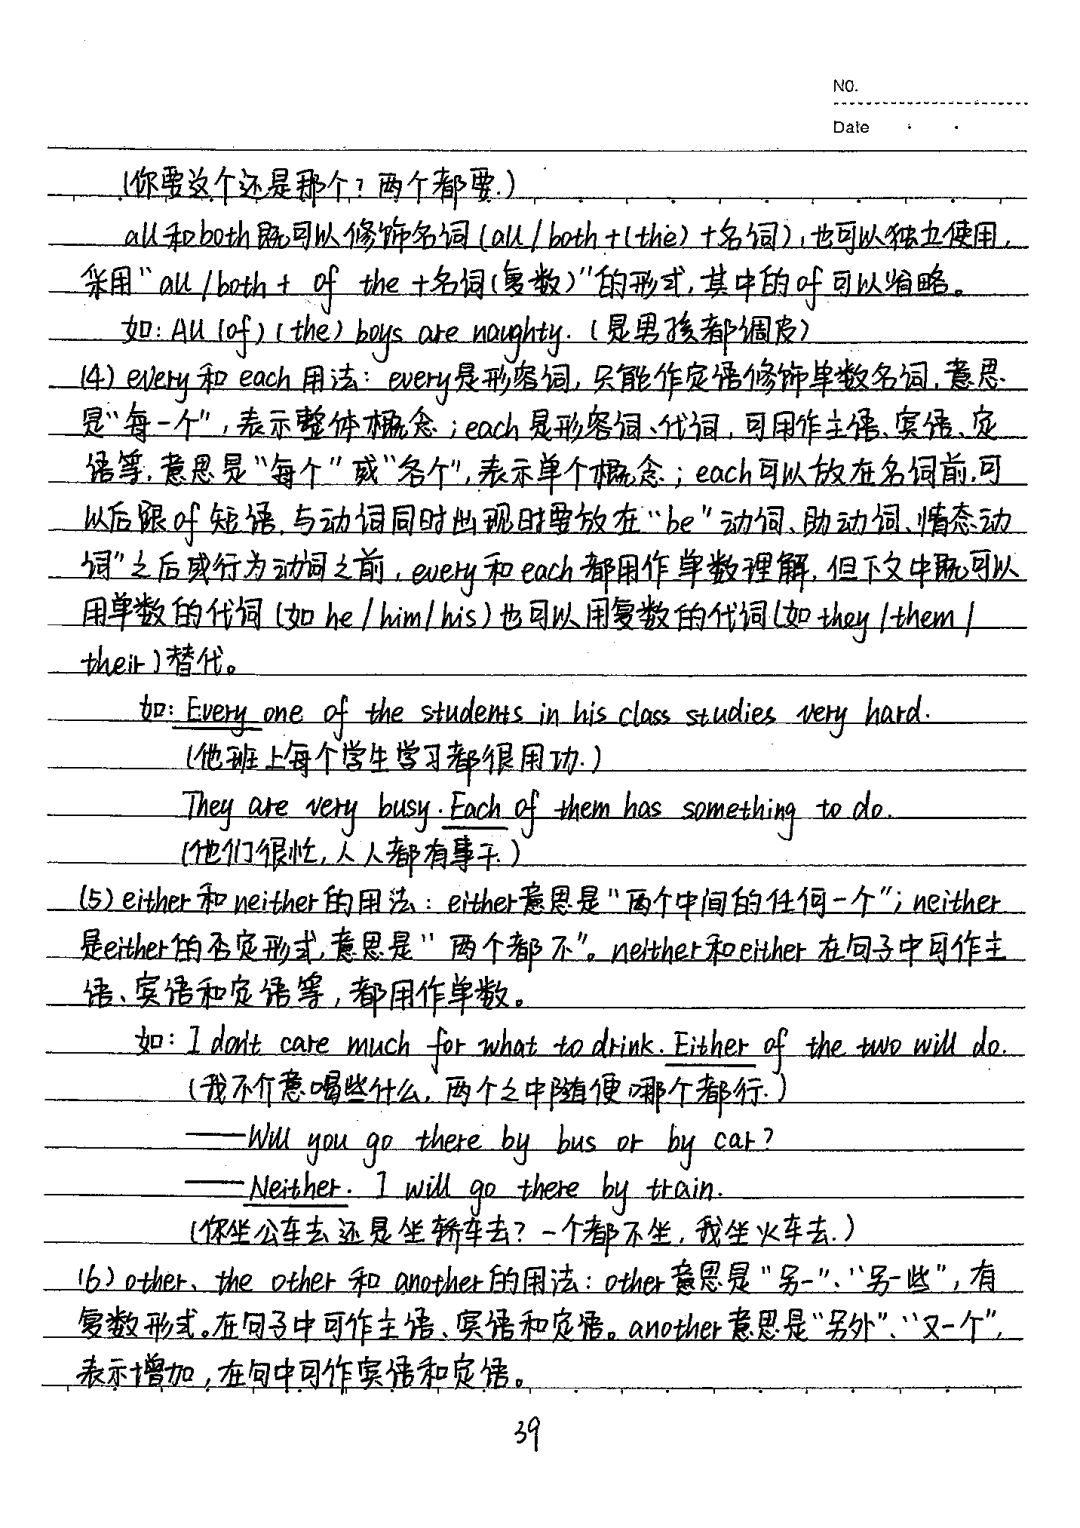 NO.
Date
(你要这个还是那个？两个都要.)
all和both既可以修饰名词(all/both+(the)+名词),也可以独立使用,
采用"all/both+ of the+名词(复数)"的形式,其中的of可以省略。
如: All (of) (the) boys are naughty. (是男孩都调皮)
(4) every和 each 用法: every是形容词, 只能作定语修饰单数名词, 意思
是"每一个", 表示整体概念; each是形容词、代词, 可用作主语、宾语、定
语等, 意思是"每个"或"各个", 表示单个概念; each可以放在名词前, 可
以后跟of 短语, 与动词同时出现时要放在"be"动词、助动词、情态动
词"之后或行为动词之前, every和each都用作单数理解, 但下文中既可以
用单数的代词(如he/him/his)也可以用复数的代词(如they/them/
their)替代。
如: Every one of the students in his class studies very hard.
(他班上每个学生学习都很用功.)
They are very busy. Each of them has something to do.
(他们很忙, 人人都有事干.)
(5) either和neither的用法: either意思是"两个中间的任何一个"; neither
是either的否定形式, 意思是" 两个都不"。neither和either 在句子中可作主
语、宾语和定语等, 都用作单数。
如: I don't care much for what to drink. Either of the two will do.
(我不介意喝些什么, 两个之中随便哪个都行.)
——Will you go there by bus or by car?
——Neither. I will go there by train.
(你坐公车去还是坐轿车去? 一个都不坐, 我坐火车去.)
(6) other、the other 和 another的用法: other意思是"另一"、"另一些", 有
复数形式。在句子中可作主语、宾语和定语。another意思是"另外"、"又一个",
表示增加, 在句中可作宾语和定语。
39